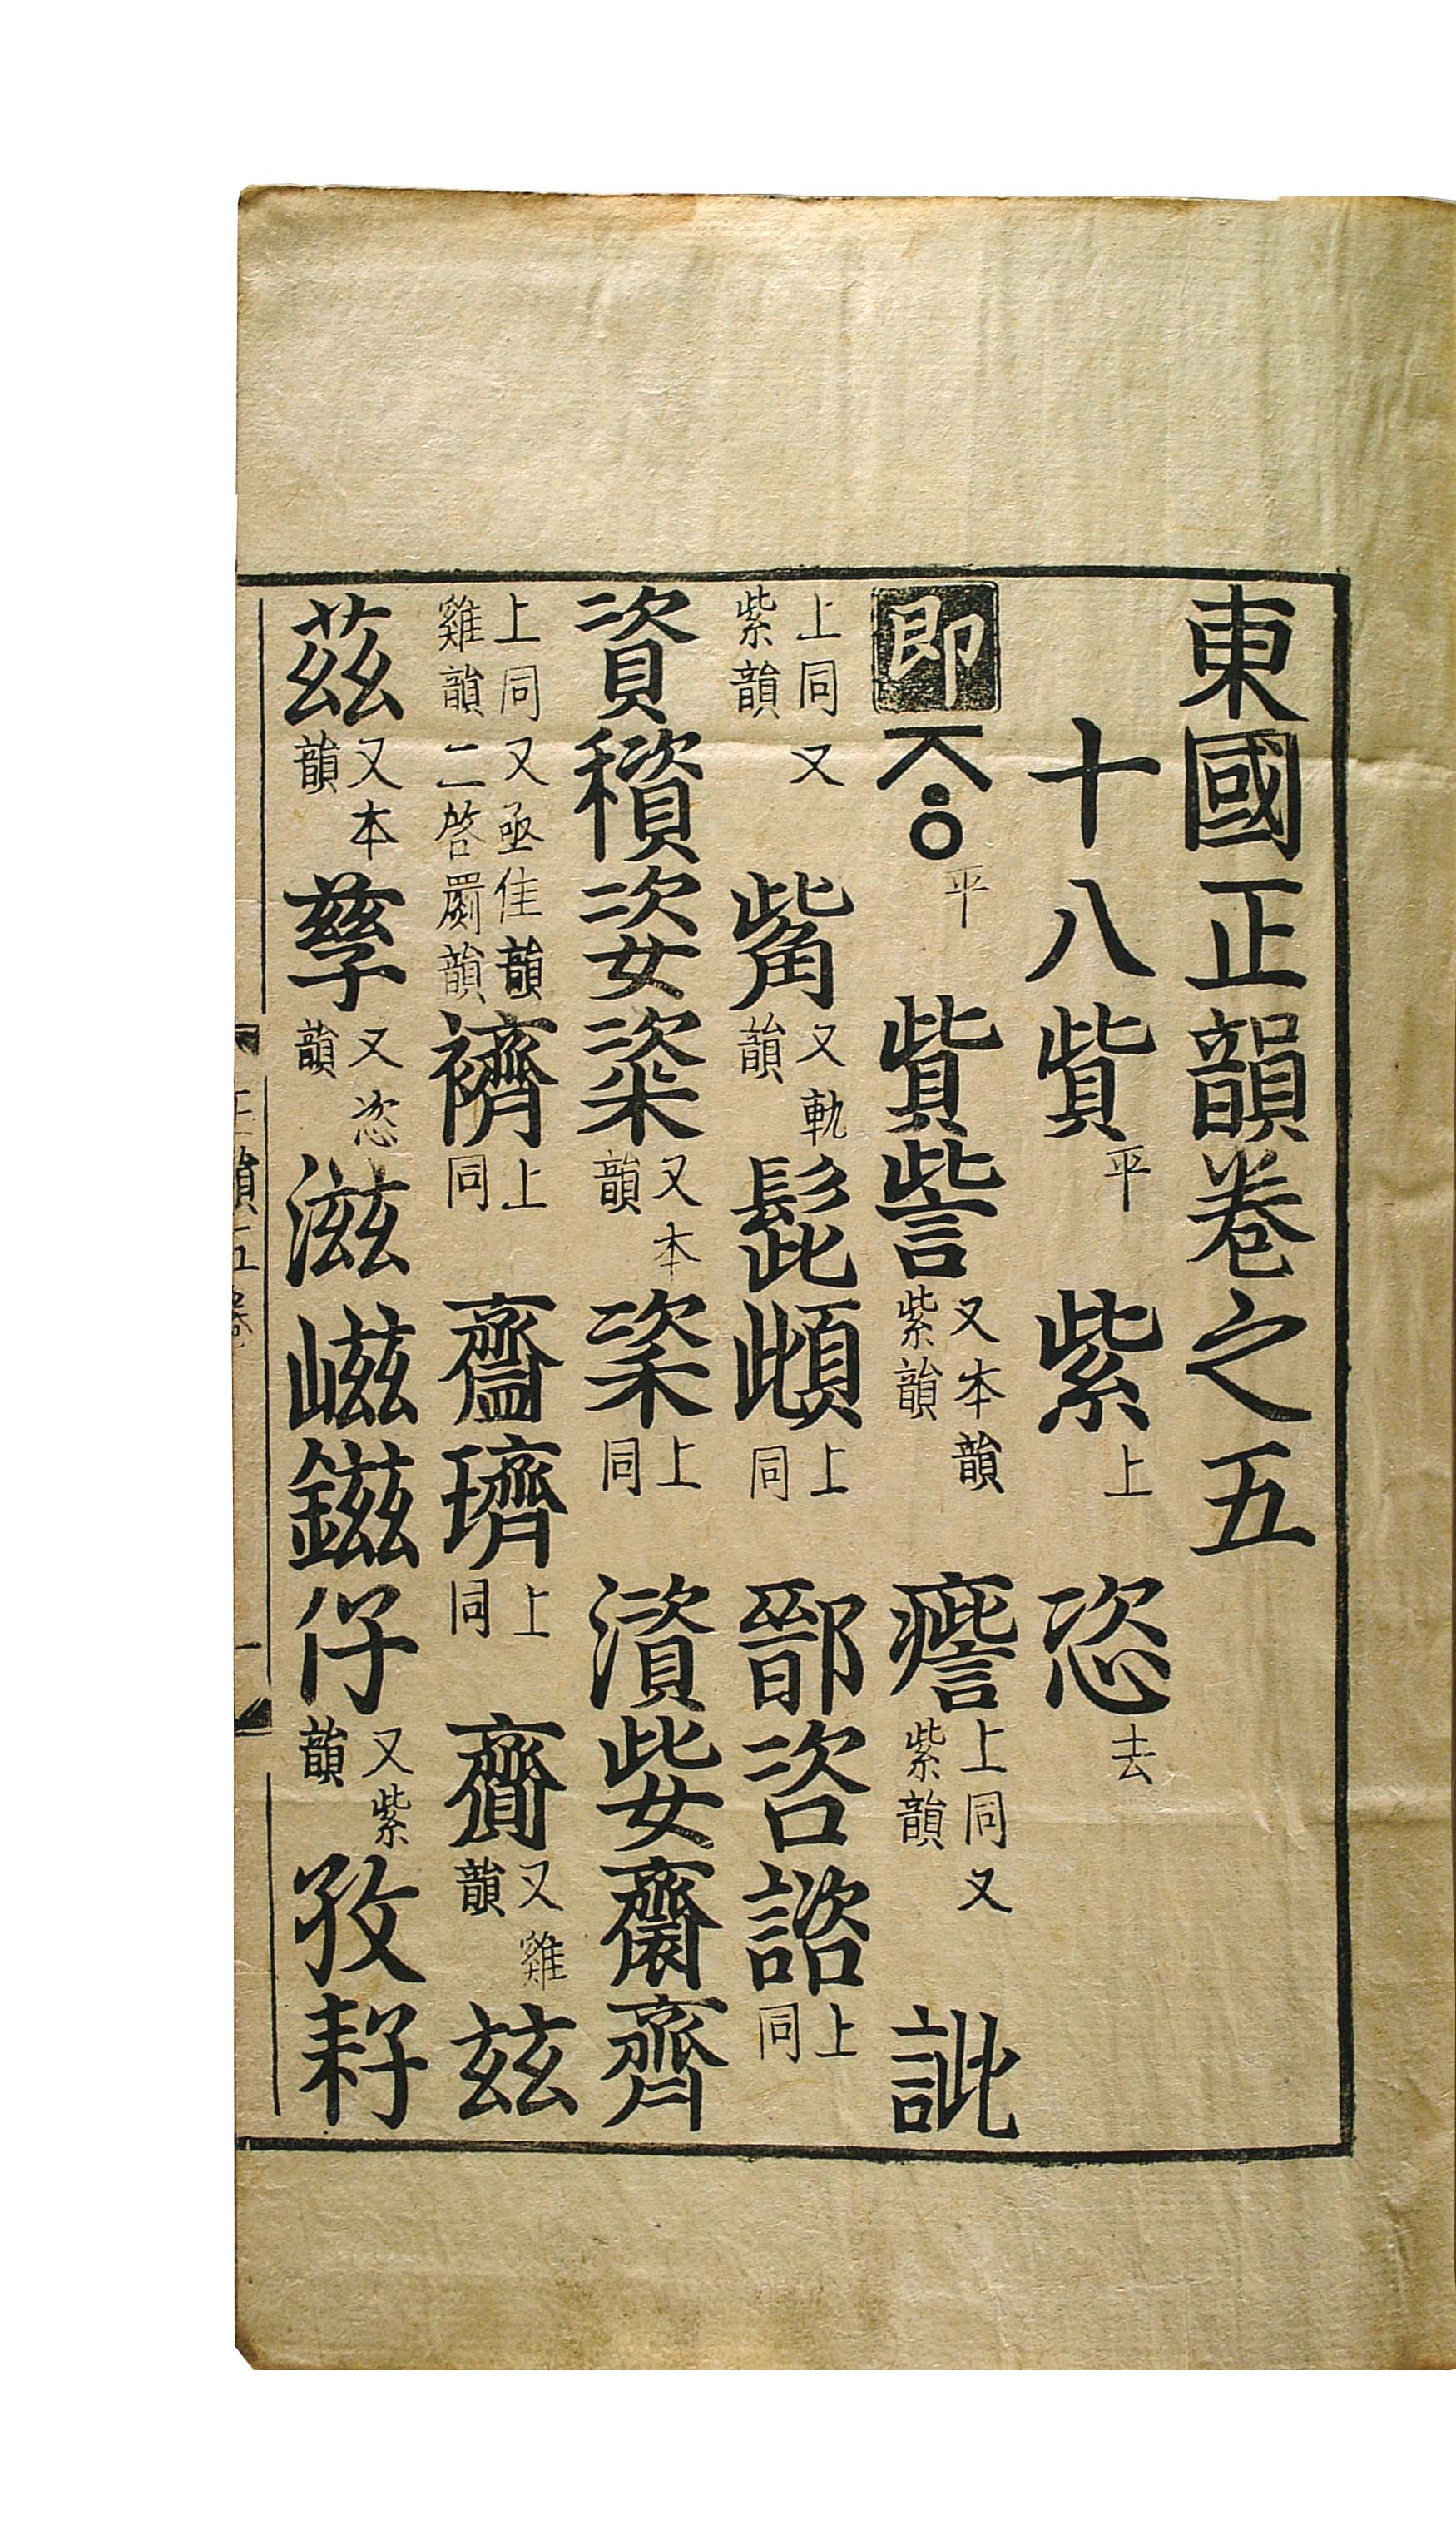 東國正韻卷之五
十八貲平 紫上 恣去
即 ᄌᆞᆼ平 貲訾又本韻紫韻 上同又紫韻 訿
上同又紫韻 觜又軌韻 髭 上同 鄑咨諮上同
資姿粢又本韻 上同 澬姕齊
上同又亟佳韻雞韻二啓罽韻 上同 齍璾上同 齎又雞韻 玆
茲又本韻 孳又恣韻 滋嵫鎡仔又紫韻 孜耔